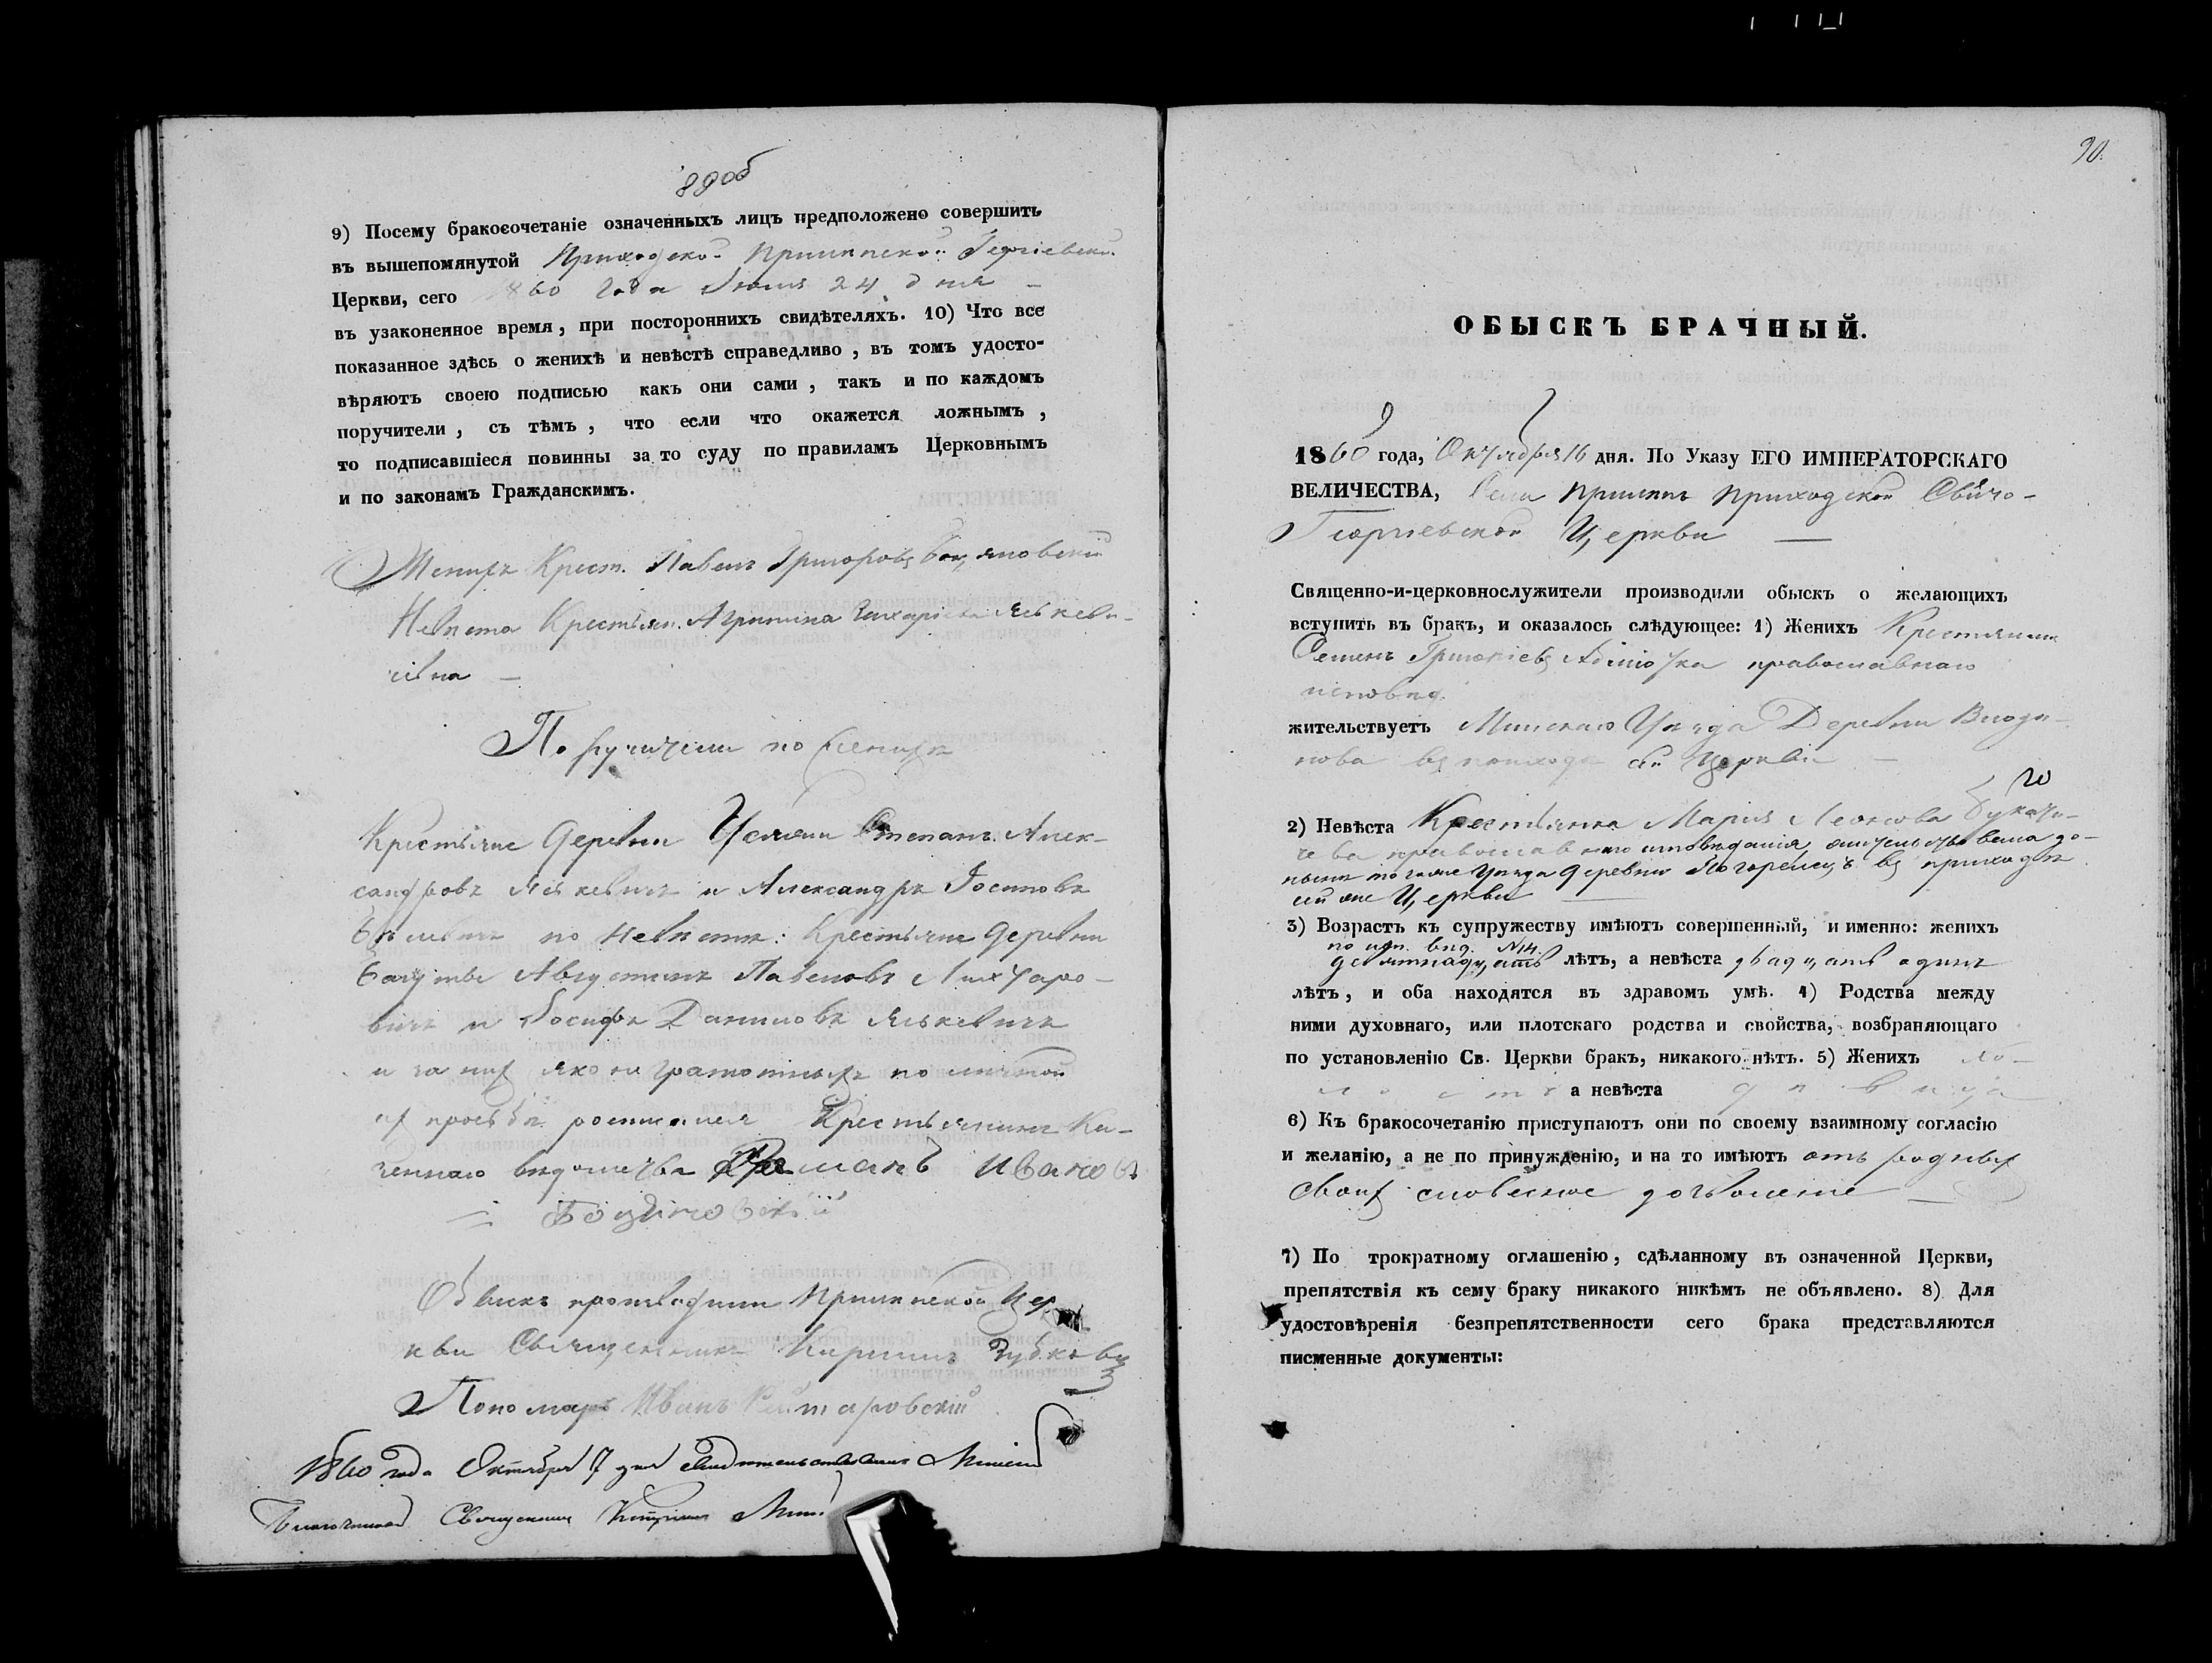 89об
9) Посему бракосочетаніе означенныхъ лицъ предположено совершить
въ вышепомянутой Приходской Прилепской Георгіевской
Церкви, сего 1860 года Іюля 24 дня –
въ узаконенное время, при постороннихъ свидѣтеляхъ. 10) Что все
показанное здѣсь о женихѣ и невѣстѣ справедливо, въ томъ удосто-
вѣряютъ своею подписью какъ они сами, такъ и по каждомъ
поручители, съ тѣмъ, что если что окажется ложнымъ,
то подписавшіеся повинны за то суду по правиламъ Церковнымъ
и по законамъ Гражданскимъ.
Женихъ Крест. Павелъ Григоровъ
Невѣста Крестьян. Агрипина Захаріева Яськеви-
чівна –
Поручители по женихѣ
Крестьяне Деревни Усяжи Степанъ Алек-
сандровъ Яськевичъ и Александръ Іосиповъ
по Невѣстѣ: Крестьяне Деревни
Августинъ Павеловъ
вичъ и Іосифъ Даниловъ Яськевичъ
и за них яко неграмотныхъ по личной
их прозьбѣ росписался Крестьянинъ Ка-
зеннаго вѣдомства Романъ Ивановъ
Обыскъ производили Прилепской Цер
кви Священникъ Кирилъ Зубковичъ
Пономарь Иванъ
1860 года Октября 7 дня
Благочинный Священникъ
90.
ОБЫСКЪ БРАЧНЫЙ.
1860 года, Октября 16 дня. По Указу ЕГО ИМПЕРАТОРСКАГО
ВЕЛИЧЕСТВА, Села Прилепъ приходской Свято-
Георгіевской Церкви —
Священно-и-церковнослужители производили обыскъ о желающихъ
вступить въ бракъ, и оказалось слѣдующее: 1) Женихъ Крестьянинъ
Семенъ православнаго
исповѣд.
жительствуетъ Минскаго Уѣзда Деревни
нова въ приходѣ сей Церкви –
2) Невѣста Крестьянка Марія Леонова
чева православнаго исповѣданія, жительствовала до-
нынѣ тогоже Уѣзда деревни Погорелецъ въ приходѣ
сей же Церкви —
3) Возрастъ къ супружеству имѣютъ совершенный, и именно: женихъ
по исп. вѣд. №14.
девятнадцать лѣтъ, а невѣста двадцать одинъ
лѣтъ, и оба находятся въ здравомъ умѣ. 4) Родства между
ними духовнаго, или плотскаго родства и свойства, возбраняющаго
по установленію Св. Церкви бракъ, никакого нѣтъ. 5) Женихъ хо-
лостъ а невѣста дѣвица
6) Къ бракосочетанію приступаютъ они по своему взаимному согласію
и желанію, а не по принужденію, и на то имѣютъ отъ родных
своих словесное дозволеніе —
7) По трократному оглашенію, сдѣланному въ означенной Церкви,
препятствія къ сему браку никакого никѣмъ не объявлено. 8) Для
удостовѣренія безпрепятственности сего брака представляются
писменные документы: